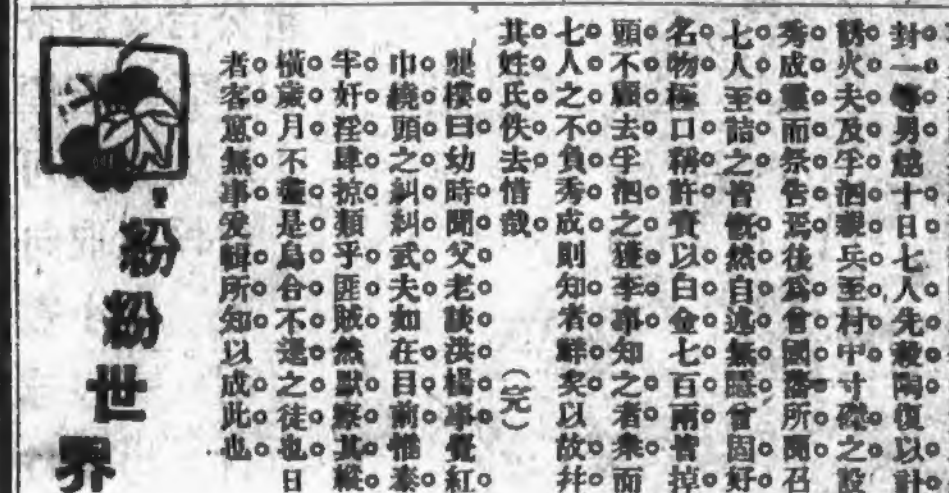 封一等男越十日七人先殺陶復以計
誘火夫及乎泗親兵至村中寸磔之設
秀成靈而祭告焉後為曾國藩所聞召
七人至詰之皆慨然自述無隱曾固好
名物極口稱許賚以白金七百兩皆掉
頭不顧去乎泗之獲李事知之者衆而
七人之不負秀成則知者鮮矣以故幷
其姓氏佚去惜哉（完）
樓曰幼時聞父老談洪楊事覺紅
巾繞頭之糾糾武夫如在目前惜泰
半奸淫肆掠類乎匪賊然獸察其縱
橫歲月不是烏合不逞之徒也日
者客窗無事爰輯所知以成此也
紛紛世界